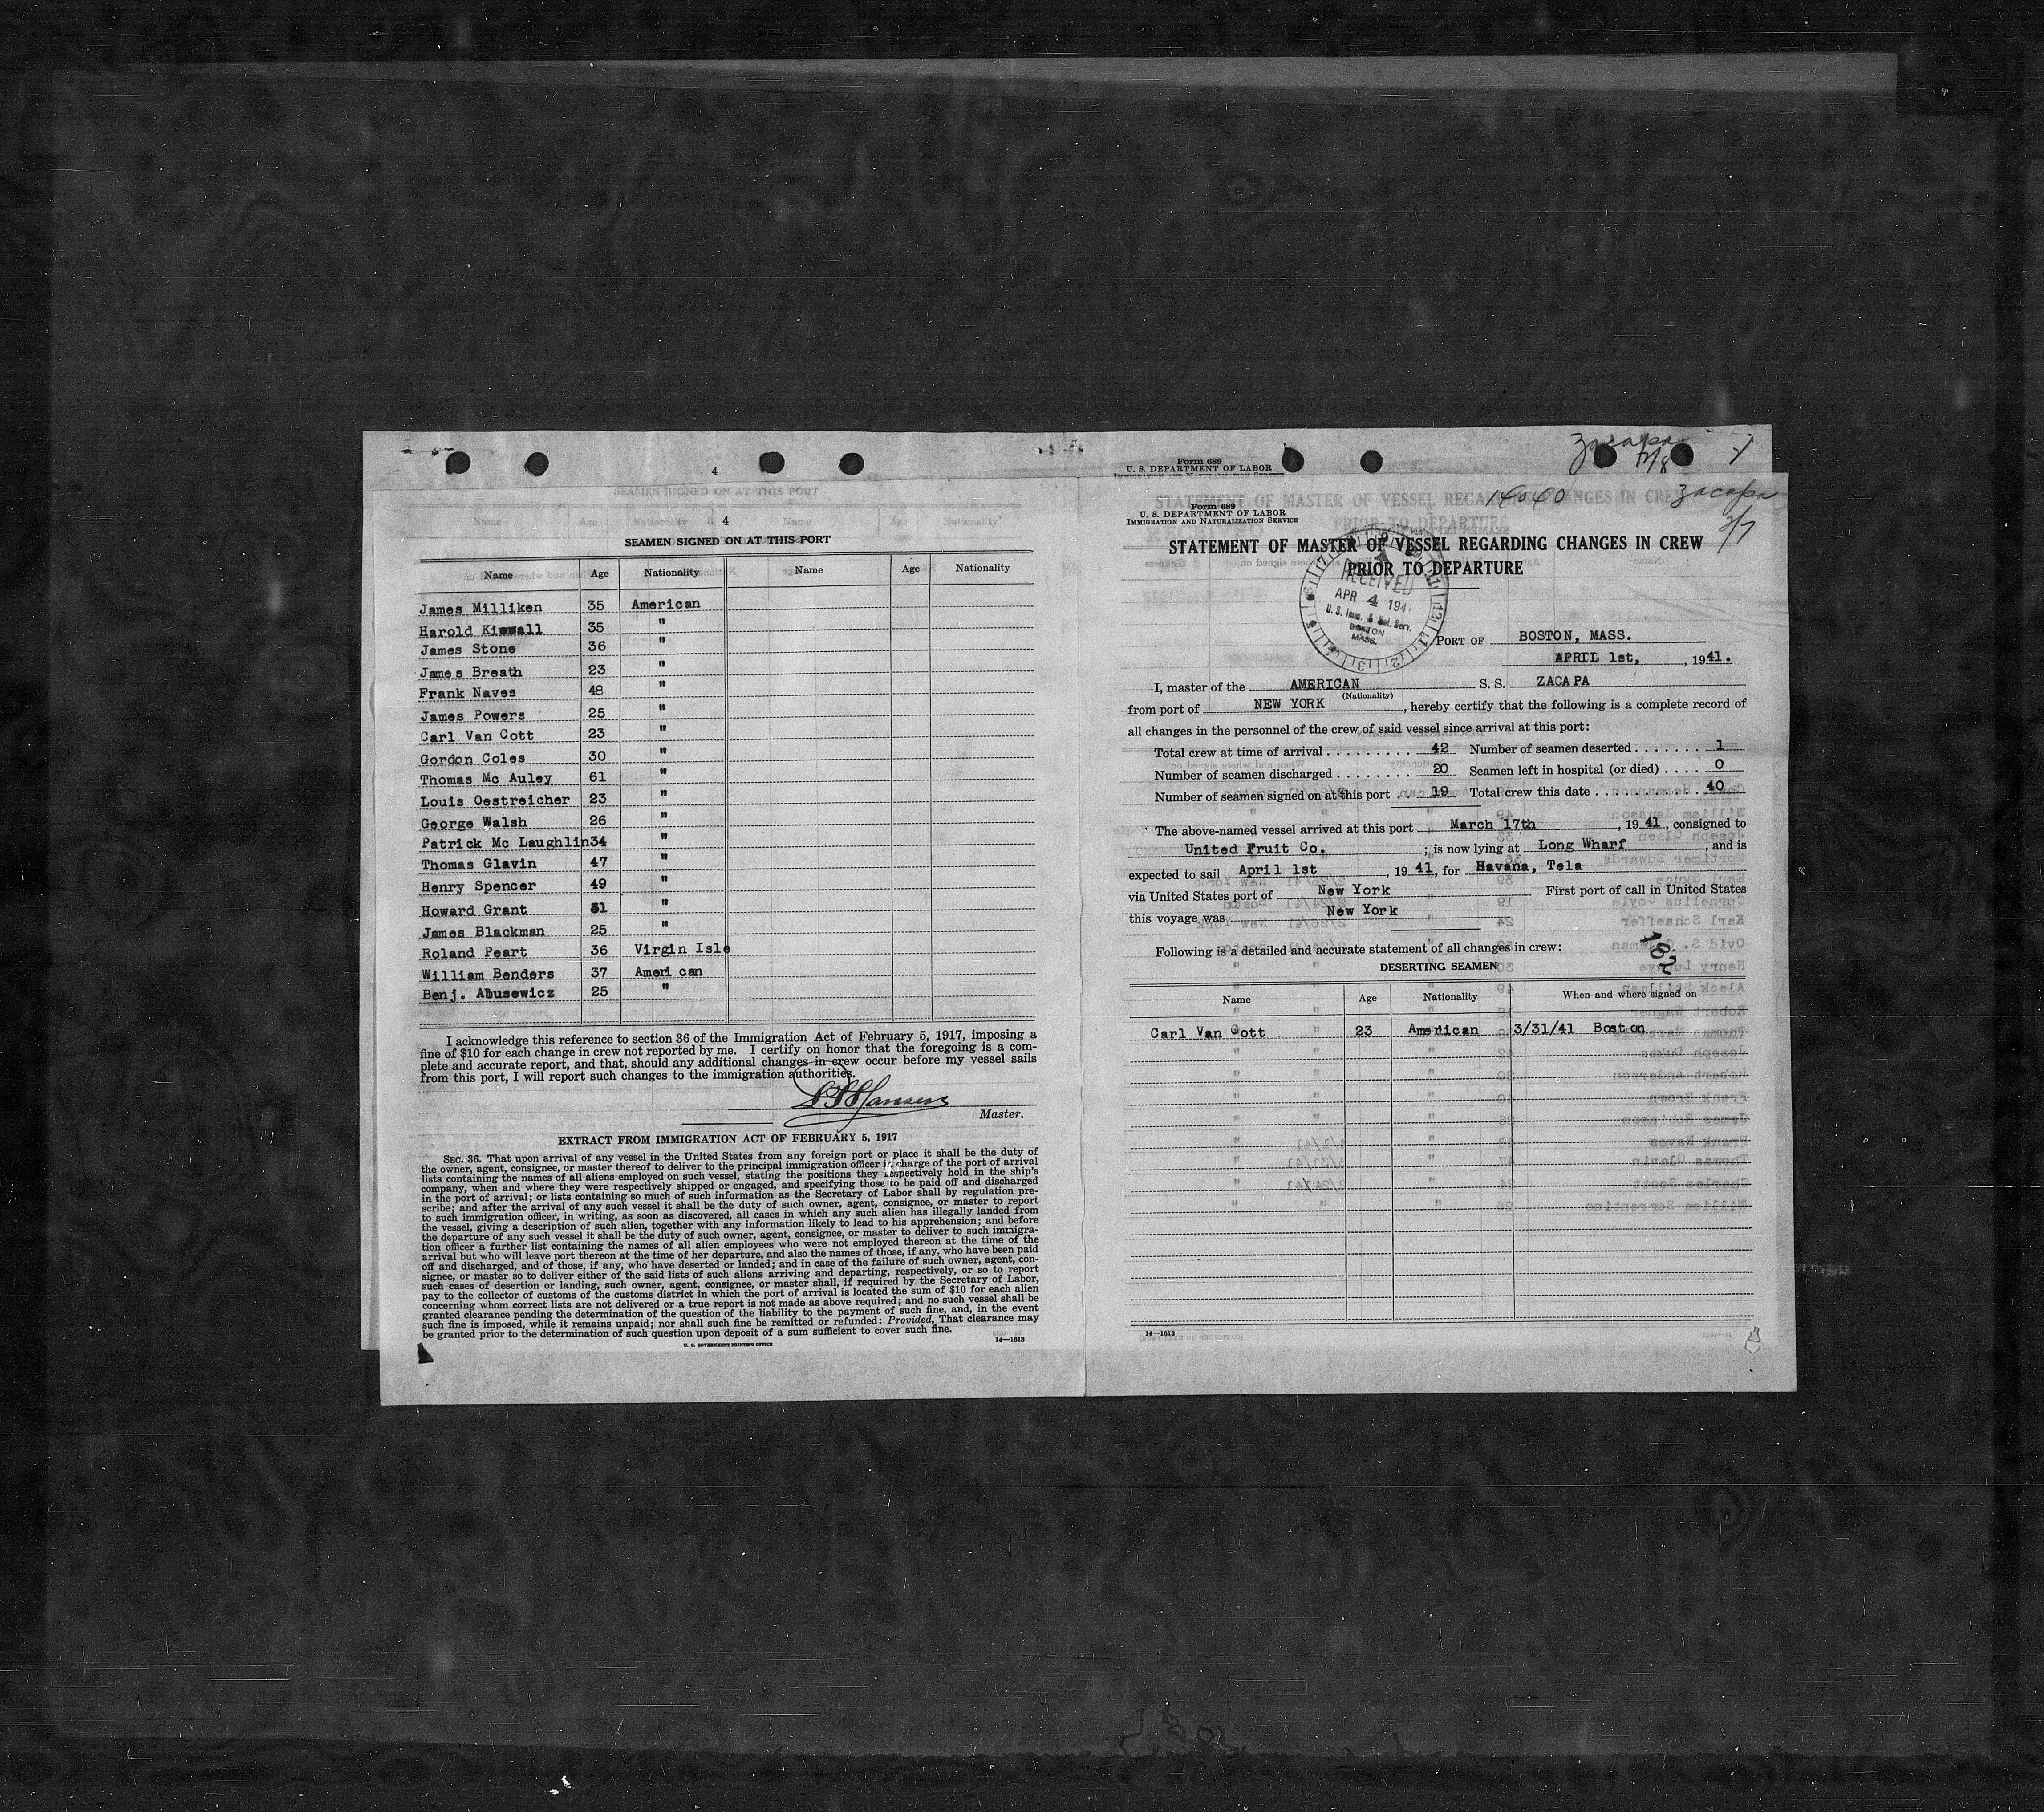 4
4
SEAMEN SIGNED ON AT THIS PORT
Name Age Nationality Name Age Nationality
James Milliken 35 American
Harold Kimwall 35 "
James Stone 36 "
James Breath 23 "
Frank Naves 48 "
James Powers 25 "
Carl Van Cott 23 "
Gordon Coles 30 "
Thomas Mc Auley 61 "
Louis Oestreicher 23 "
George Walsh 26 "
Patrick Mc Laughlin 34 "
Thomas Glavin 47 "
Henry Spencer 49 "
Howard Grant 31 "
James Blackman 25 "
Roland Peart 36 Virgin Isle
William Benders 37 American
Benj. Abusewicz 25 "
I acknowledge this reference to section 36 of the Immigration Act of February 5, 1917, imposing a
fine of $10 for each change in crew not reported by me. I certify on honor that the foregoing is a com-
plete and accurate report, and that, should any additional changes in crew occur before my vessel sails
from this port, I will report such changes to the immigration authorities.
Hansen
Master.
EXTRACT FROM IMMIGRATION ACT OF FEBRUARY 5, 1917
SEC. 36. That upon arrival of any vessel in the United States from any foreign port or place it shall be the duty of
the owner, agent, consignee, or master thereof to deliver to the principal immigration officer in charge of the port of arrival
lists containing the names of all aliens employed on such vessel, stating the positions they respectively hold in the ship's
company, when and where they were respectively shipped or engaged, and specifying those to be paid off and discharged
in the port of arrival; or lists containing so much of such information as the Secretary of Labor shall by regulation pre-
scribe; and after the arrival of any such vessel it shall be the duty of such owner, agent, consignee, or master to report
to such immigration officer, in writing, as soon as discovered, all cases in which any such alien has illegally landed from
the vessel, giving a description of such alien, together with any information likely to lead to his apprehension; and before
the departure of any such vessel it shall be the duty of such owner, agent, consignee, or master to deliver to such immigra-
tion officer a further list containing the names of all alien employees who were not employed thereon at the time of the
arrival but who will leave port thereon at the time of her departure, and also the names of those, if any, who have been paid
off and discharged, and of those, if any, who have deserted or landed; and in case of the failure of such owner, agent, con-
signee, or master so to deliver either of the said lists of such aliens arriving and departing, respectively, or so to report
such cases of desertion or landing, such owner, agent, consignee, or master shall, if required by the Secretary of Labor,
pay to the collector of customs of the customs district in which the port of arrival is located the sum of $10 for each alien
concerning whom correct lists are not delivered or a true report is not made as above required; and no such vessel shall be
granted clearance pending the determination of the question of the liability to the payment of such fine, and, in the event
such fine is imposed, while it remains unpaid; nor shall such fine be remitted or refunded: Provided, That clearance may
be granted prior to the determination of such question upon deposit of a sum sufficient to cover such fine.
U. S. GOVERNMENT PRINTING OFFICE 14—1613
Form 689
U. S. DEPARTMENT OF LABOR
Zacapa
Form 689
U. S. DEPARTMENT OF LABOR
IMMIGRATION AND NATURALIZATION SERVICE
Zacapa
STATEMENT OF MASTER OF VESSEL REGARDING CHANGES IN CREW
PRIOR TO DEPARTURE
RECEIVED
APR 4 194
U. S. Imm. & Nat. Serv.
BOSTON
MASS.
PORT OF BOSTON, MASS.
APRIL 1st, , 1941.
I, master of the AMERICAN S. S. ZACAPA
(Nationality)
from port of NEW YORK , hereby certify that the following is a complete record of
all changes in the personnel of the crew of said vessel since arrival at this port:
Total crew at time of arrival . . . . . . . . . 42 Number of seamen deserted . . . . . . . 1
Number of seamen discharged . . . . . . . . 20 Seamen left in hospital (or died) . . . . 0
Number of seamen signed on at this port . . 19 Total crew this date . . . . . . . . . . 40
The above-named vessel arrived at this port March 17th , 1941, consigned to
United Fruit Co. ; is now lying at Long Wharf , and is
expected to sail April 1st , 1941, for Havana, Tela
via United States port of New York First port of call in United States
this voyage was New York
Following is a detailed and accurate statement of all changes in crew:
182
DESERTING SEAMEN
Name Age Nationality When and where signed on
Carl Van Cott 23 American 3/31/41 Boston
14—1613